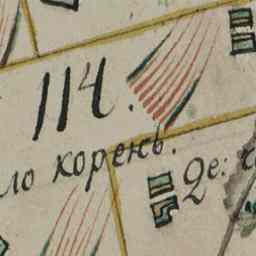 114.
ло корень.
2е: